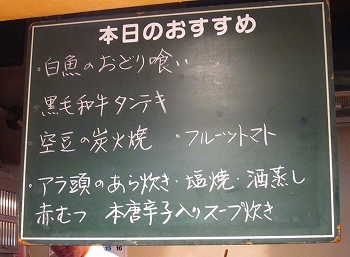 本日のおすすめ
・白魚のおどり喰い
黒毛和牛タンテキ
空豆の炭火焼 ・フルーツトマト
・アラ頭のあら炊き・塩焼・酒蒸し
赤むつ 本唐辛子入りスープ炊き
15 16